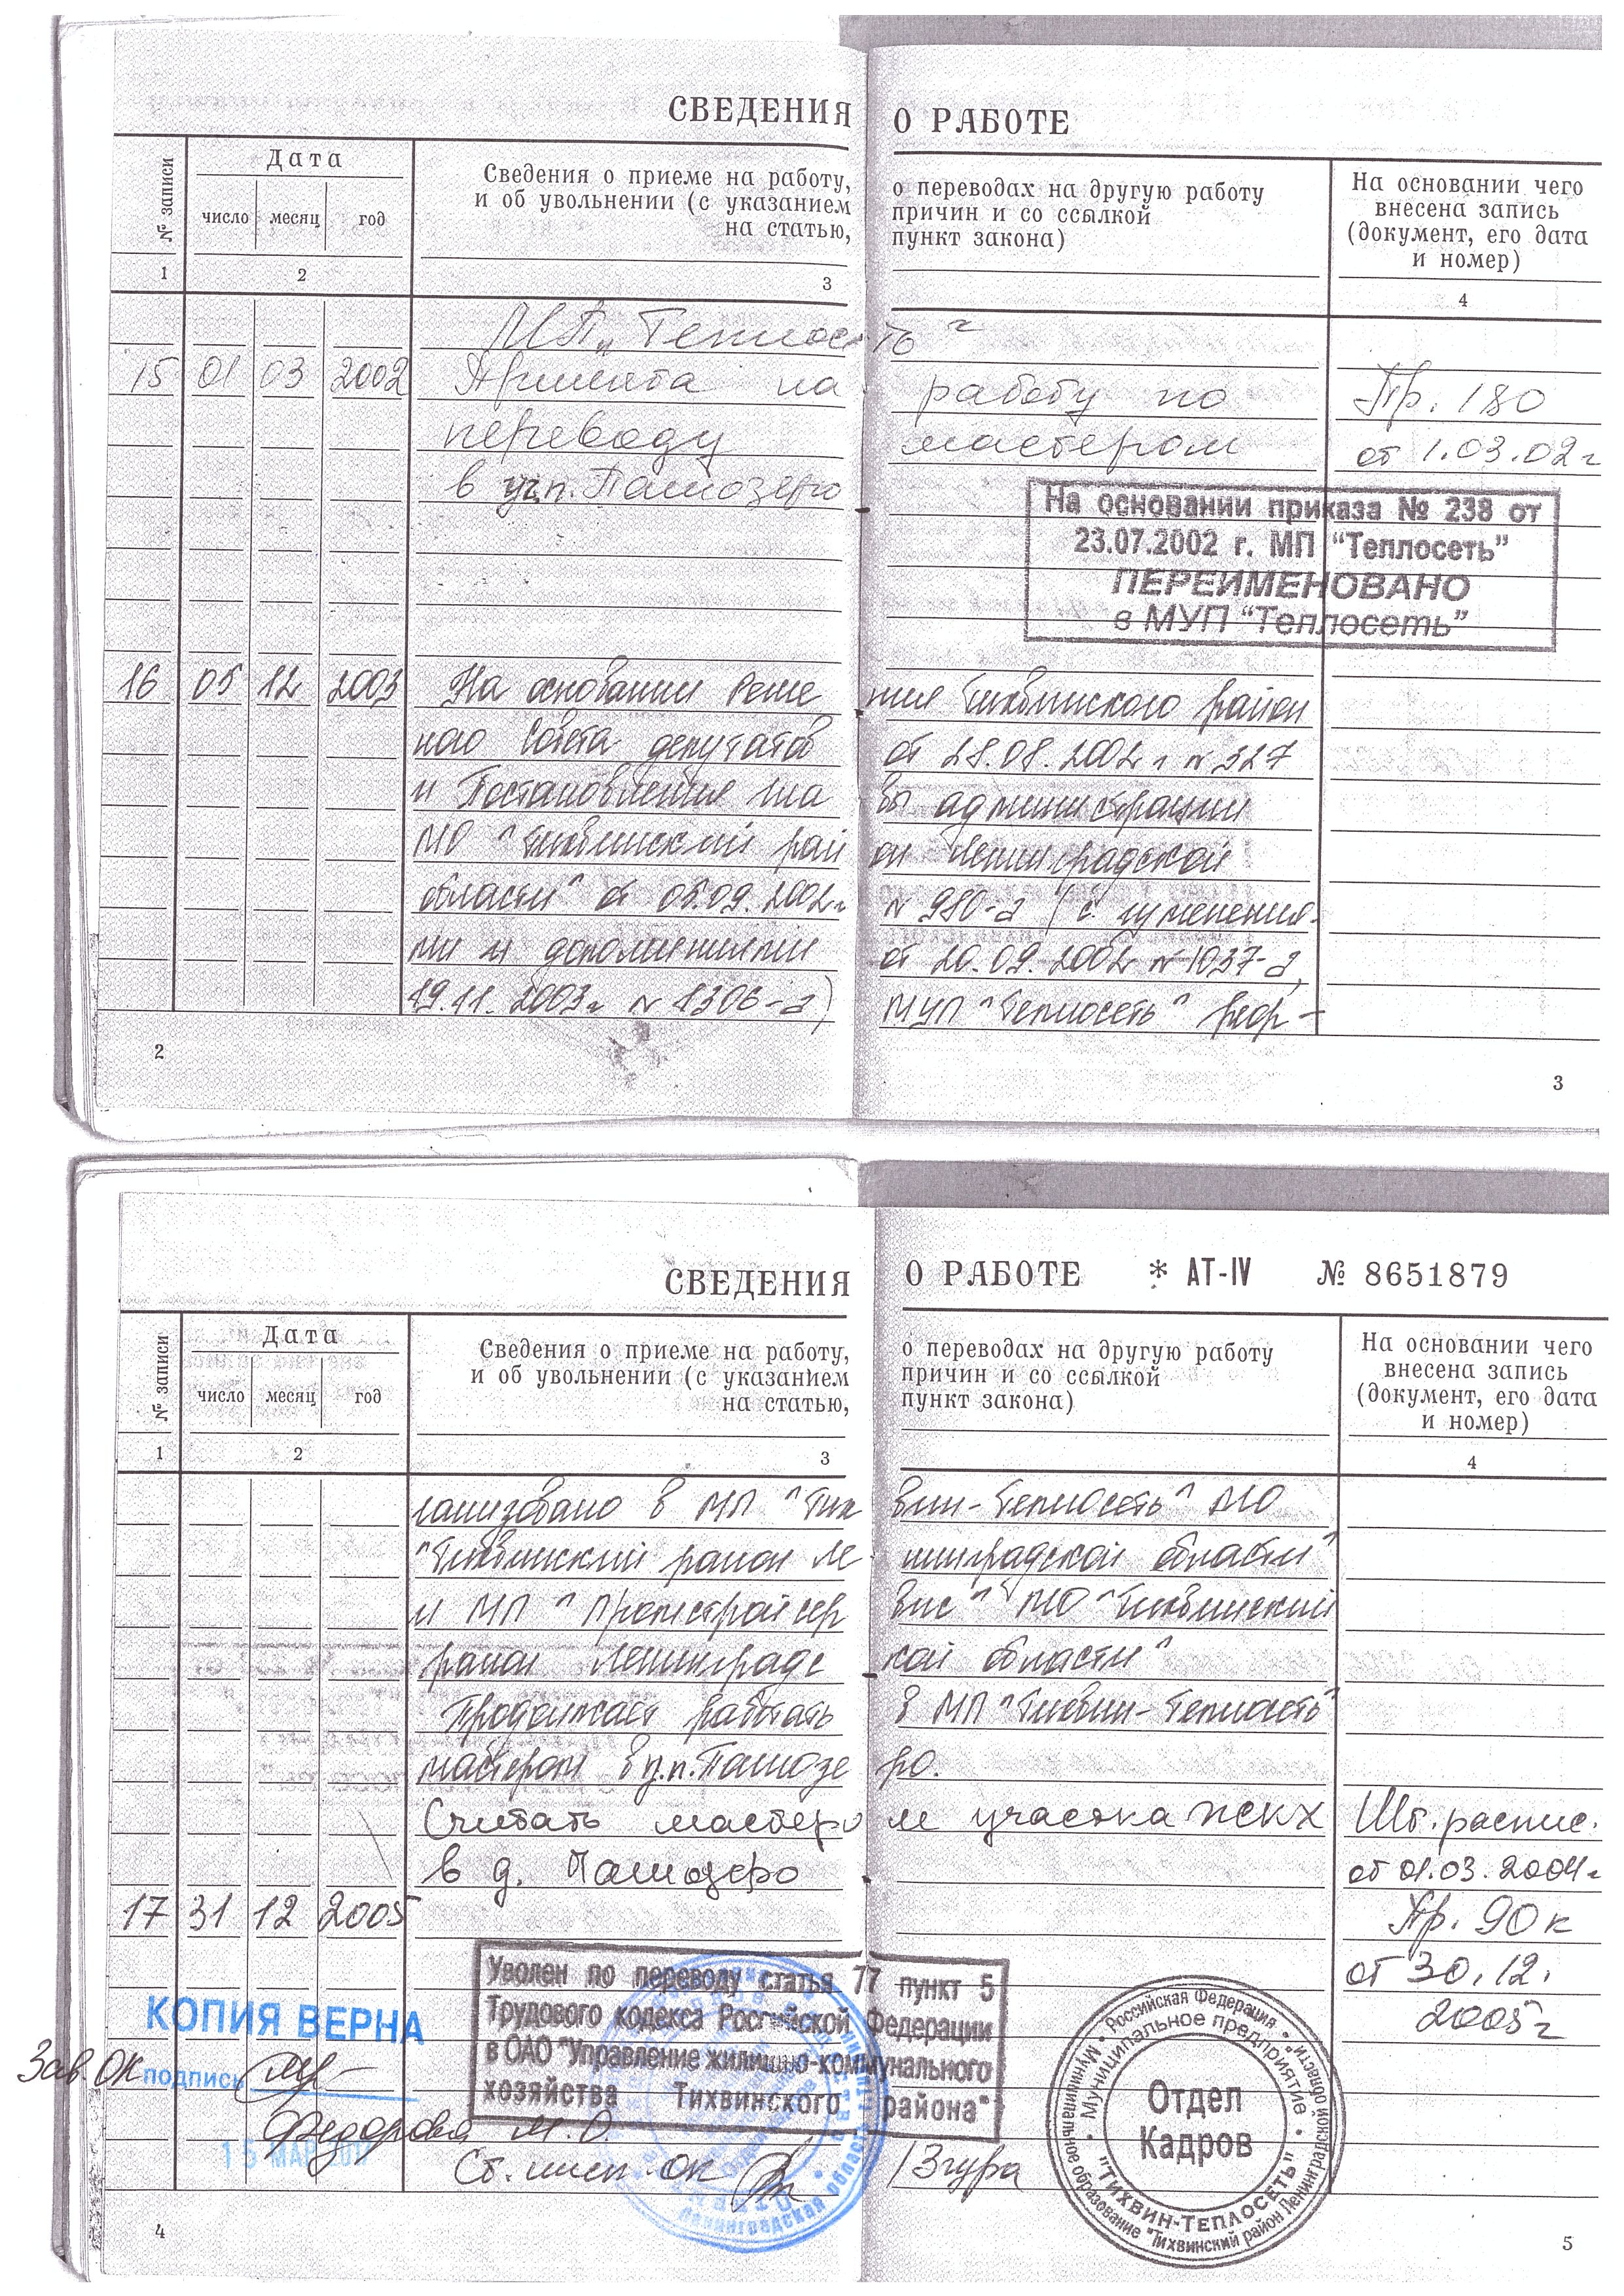 СВЕДЕНИЯ О РАБОТЕ
№ записи
Дата
число месяц год
Сведения о приеме на работу, о переводах на другую работу
и об увольнении (с указанием причин и со ссылкой
на статью, пункт закона)
На основании чего
внесена запись
(документ, его дата
и номер)
1 2 3 4
МП "Теплосеть"
15 01 03 2002 Принята на работу по Пр. 180
переводу мастером от 1.03.02г
в уч.п. Пашозеро
На основании приказа № 238 от
23.07.2002 г. МП "Теплосеть"
ПЕРЕИМЕНОВАНО
в МУП "Теплосеть"
16 05 12 2003 На основании решения Тихвинского район
ного Совета депутатов от 28.08.2002г N 327
и Постановления главы администрации
МО "Тихвинский район Ленинградской
области" от 05.09.2002г N 980-а (с изменения-
ми и дополнениями от 20.09.2002г N 1037-а,
19.11.2003г N 1306-а) МУП "Теплосеть" реор-
2
3
СВЕДЕНИЯ О РАБОТЕ * AT-IV № 8651879
№ записи
Дата
число месяц год
Сведения о приеме на работу, о переводах на другую работу
и об увольнении (с указанием причин и со ссылкой
на статью, пункт закона)
На основании чего
внесена запись
(документ, его дата
и номер)
1 2 3 4
ганизовано в МП "Тихвин-Теплосеть" МО
"Тихвинский район Ленинградской области"
и МП "Промстройсервис" МО "Тихвинский
район Ленинградской области"
Продолжает работать в МП "Тихвин-Теплосеть"
мастером в уч.п. Пашозеро.
Считать мастером участка ЖКХ Шт. распис.
в д. Пашозеро от 01.03.2004г
17 31 12 2005 Пр. 90к
от 30.12.
2005г
Уволен по переводу статья 77 пункт 5
Трудового кодекса Российской Федерации
в ОАО "Управление жилищно-коммунального
хозяйства Тихвинского района"
КОПИЯ ВЕРНА
Зав. ОК подпись
Федорова М.О.
15 МАР
Ст. инсп. ОК /Згура
Российская Федерация • Муниципальное образование "Тихвинский район Ленинградской области"
Муниципальное предприятие
"ТИХВИН-ТЕПЛОСЕТЬ"
Отдел
Кадров
Ленинградская область
4
5